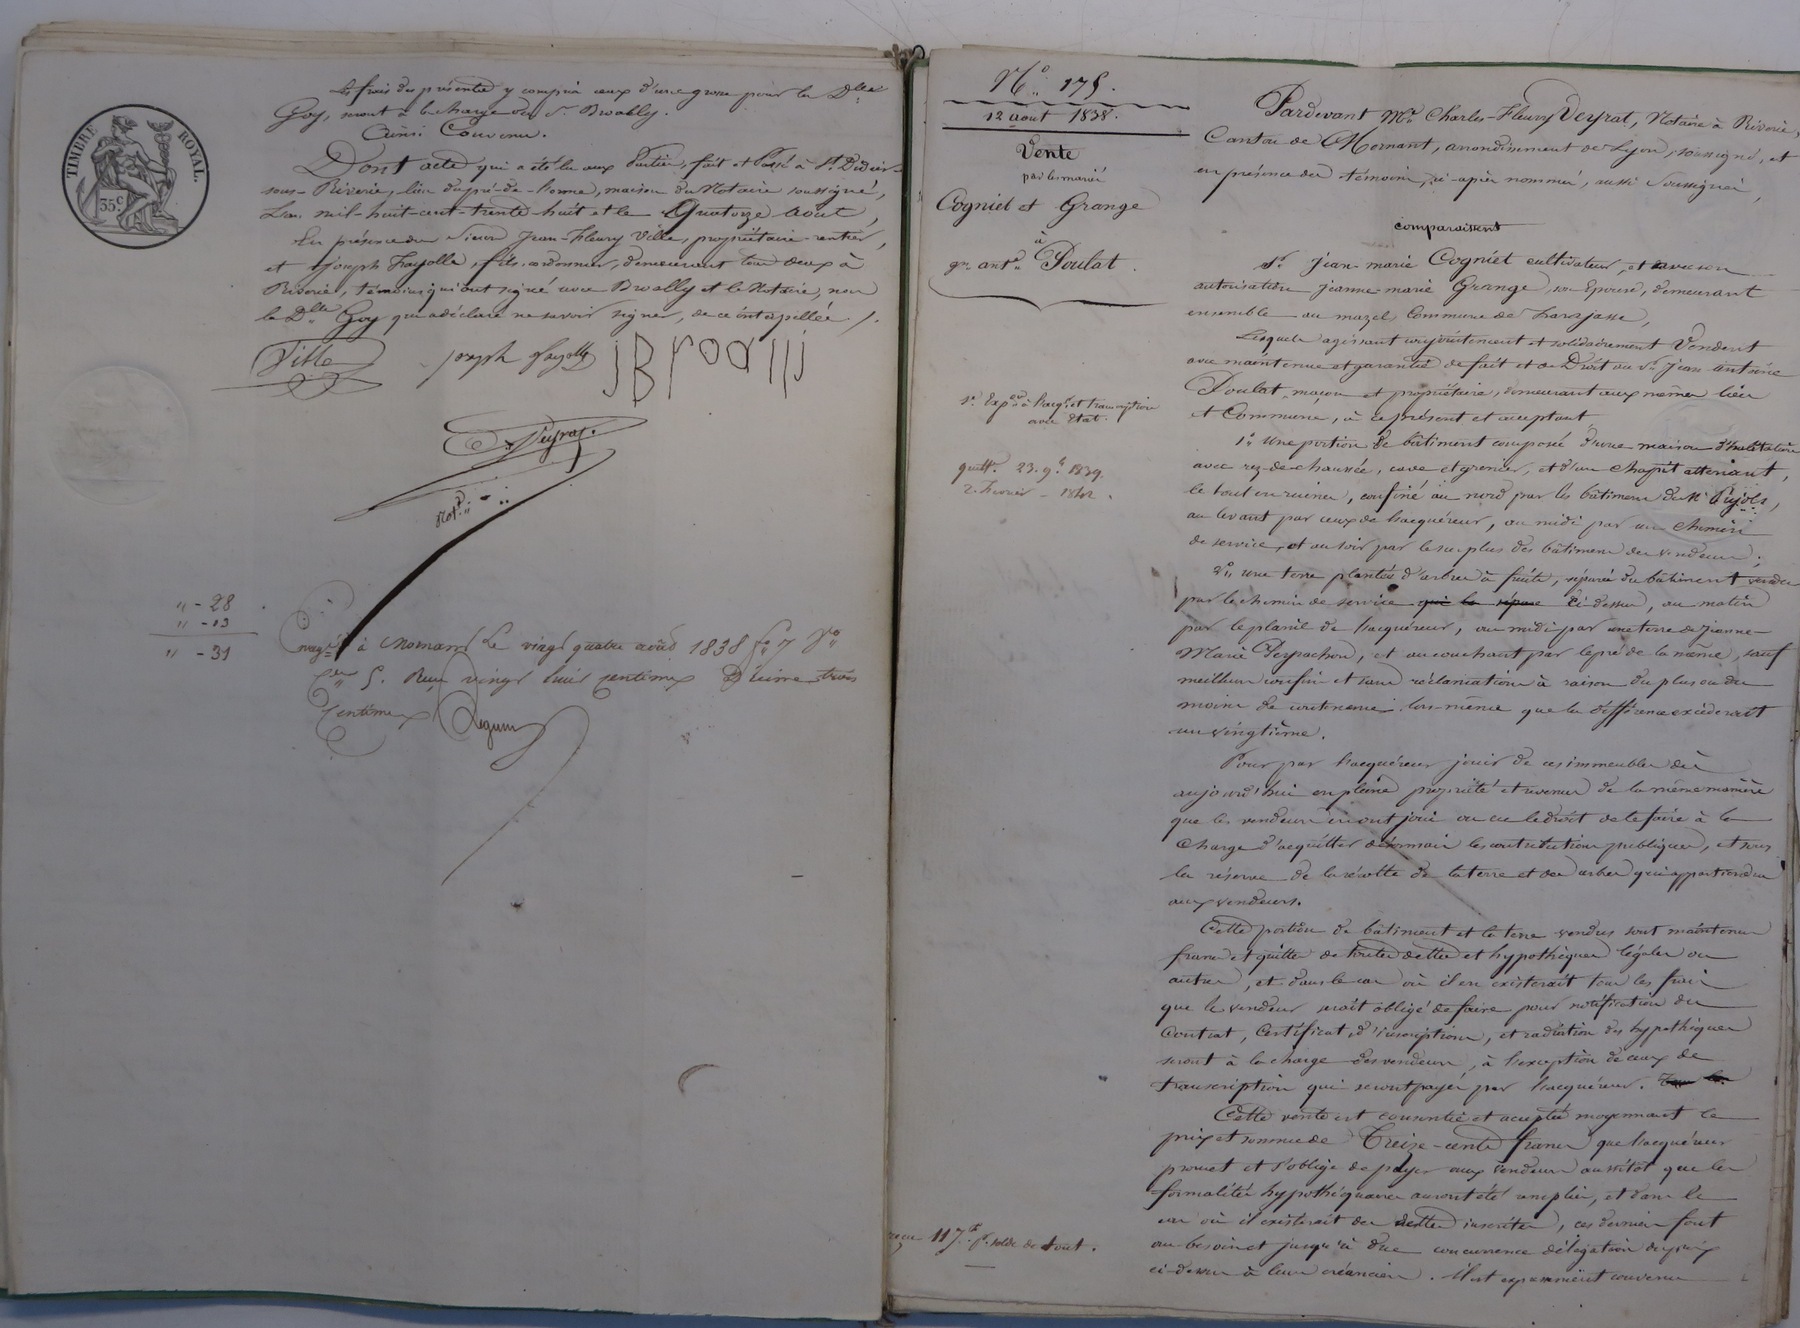 TIMBRE ROYAL.
35 c
Les frais des présentes y compris ceux d'une grosse pour la Dlle
Goy, seront à la charge du Sr. Broally.
Ainsi Convenu.
Dont acte qui a été lu aux Parties, fait et Passé à St. Didier-
sous-Riverie, lieu du pré-de-Lorme, maison du Notaire soussigné,
L'an mil-huit-cent-trente-huit et le Quatorze Aout,
En présence des Sieurs Jean-Fleury Ville, propriétaire-rentier,
et Joseph Fayolle, fils, cordonnier, demeurant tous deux à
Riverie, témoins qui ont signé avec Broally et le Notaire, non
la Dlle Goy qui a déclaré ne savoir signer, de ce interpellée ./.
Ville
joseph fayolle
jBroallj
Veyrat.
Not.re
" - 28
" - 13
" - 31
Enreg.é à Mornant Le vingt quatre août 1838 f.o 7 V.o
C.es 5. Reçu vingt huit centimes Décime trois
Centimes Seguin
N.o 175.
12 aout 1838.
Vente
par les mariés
Cogniet et Grange
à
ant. Poulat.
1e Exp.on à l'acq.r et transcription
avec Etat.
quitt. 23. 9bre 1839.
2. fevrier - 1842.
117 f. solde de tout.
Pardevant Me Charles-Fleury Veyrat, Notaire à Riverie,
Canton de Mornant, arrondissement de Lyon, soussigné, et
en présence des témoins, ci-après nommés, aussi soussignés,
comparaissent
Sr. Jean-marie Cogniet cultivateur, et avec son
autorisation jeanne-marie Grange, son Epouse, demeurant
ensemble au mazel, Commune de Larajasse,
Lesquels agissant conjointement et solidairement Vendent
avec maintenue et garantie de fait et de Droit au Sr. Jean-antoine
Poulat, maçon et propriétaire, demeurant aux mêmes lieu
et Commune, à ce présent et acceptant
1.o une portion de bâtiment composé d'une maison d'habitation
avec rez-de-chaussée, cave et grenier, et d'un chapit attenant,
le tout en ruines, confiné au nord par les bâtimens du
au levant par ceux de l'acquéreur, au midi par un chemin
de service, et au soir par le surplus des bâtimens des vendeurs;
2.o une terre plantée d'arbres à fruits, séparée du bâtiment vendu
par le chemin de service qui la sépare ci-dessus, au matin
par le planil de l'acquéreur, au midi par une terre de Jeanne-
Marie Perrachon, et au couchant par le pré de la même, sauf
meilleurs confins et sans réclamation à raison du plus ou du
moins de contenance, lors-même que la différence excéderait
un vingtième.
Pour par l'acquéreur jouir de ces immeubles dès
aujourd'hui en pleine propriété et revenus de la même manière
que les vendeurs en ont joui ou eu le droit de le faire à la
charge d'acquitter désormais les contributions publiques, et sous
la réserve de la récolte de la terre et des arbres qui appartiendra
aux vendeurs.
Cette portion de bâtiment et la terre vendus sont maintenus
francs et quittes de toutes dettes et hypothèques légales ou
autres, et dans le cas où il en existerait tous les frais
que le vendeur serait obligé de faire pour notification du
Contrat, Certificat d'inscriptions, et radiation des hypothèques
seront à la charge des vendeurs, à l'exception de ceux de
transcription qui seront payés par l'acquéreur.
Cette vente est consentie et acceptée moyennant le
prix et somme de Treize-cents francs que l'acquéreur
promet et s'oblige de payer aux vendeurs aussitôt que les
formalités hypothécaires auront été remplies, et dans le
cas où il existerait des dettes inscrites, ces derniers font
au besoin et jusqu'à due concurrence délégation du prix
ci-dessus à leurs créanciers. Il est expressément convenu